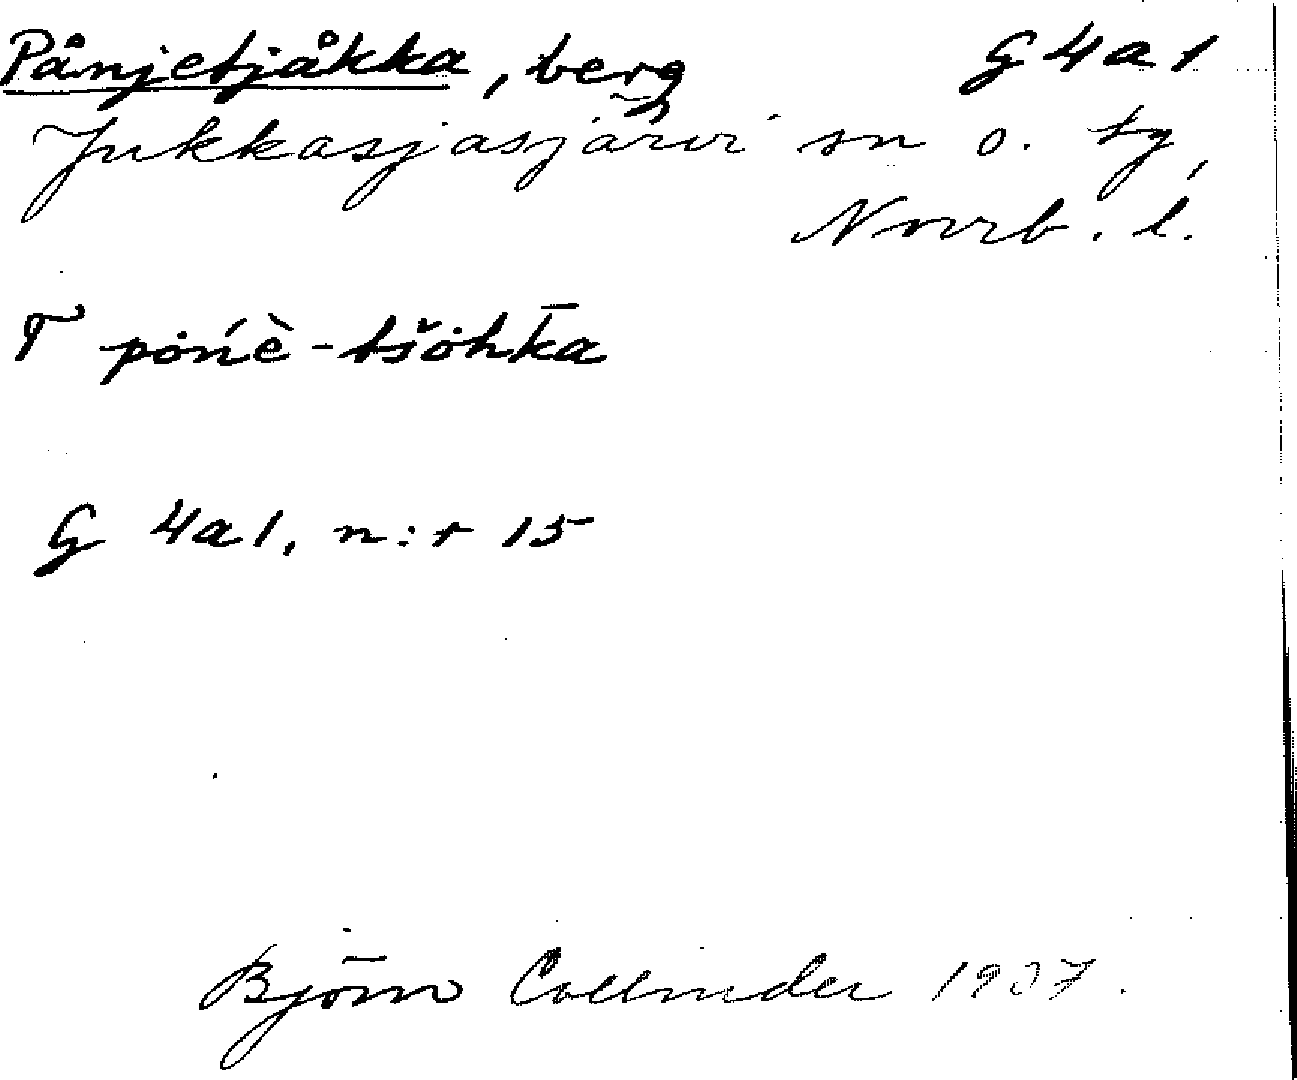 Pånjetjåkka, berg G4a1
Jukkasjasjärvi sn o. tg,
Norrb. l.
T pȯńè-tšȯhk̄a
G 4a1, n:r 15
Björn Collinder 1937.